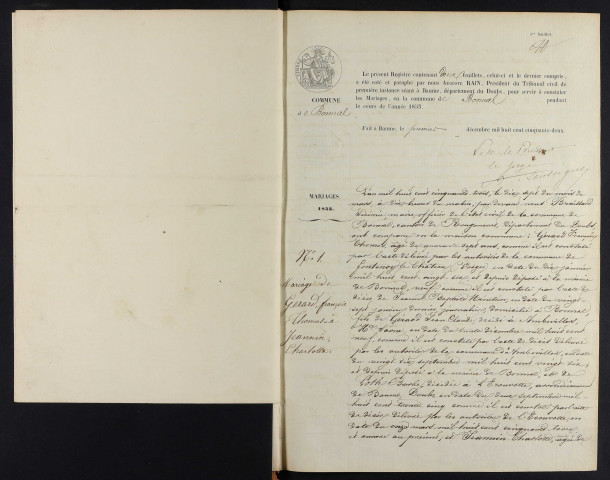 1er feuillet
Le présent Registre contenant trois feuillets, celui-ci et le dernier compris,
a été coté et paraphé par nous Auguste BAIN, Président du Tribunal civil de
première instance séant à Baume, département du Doubs, pour servir à constater
les Mariages, en la commune de Bonnal pendant
le cours de l'année 1853.
COMMUNE
de Bonnal
Fait à Baume, le premier décembre mil huit cent cinquante-deux.
MARIAGES
1853.
L'an mil huit cent cinquante trois, le dix sept du mois de
mars, à dix heures du matin, par devant nous
maire, officier de l'état civil de la commune de
Bonnal, canton de Rougemont, département du Doubs,
ont comparu en la maison commune: Gérard François
Thomas, âgé de quarante sept ans, comme il est constaté
N° 1.
par l'acte délivré par les autorités de la commune de
Fontenoy le Château, Vosges en date du dix janvier
mil huit cent vingt six et depuis déposé à la mairie
Mariage de
Gérard, françois
thomas à
Jeannin
Charlotte.
de Bonnal, veuf comme il est constaté par l'acte de
décès de Jeanne Baptiste en date du vingt
sept dernier journalier, domicilié à Bonnal,
fils de Gérard Jean Claude décédé à
Hte Saône, en date du trente décembre mil huit cent
neuf, comme il est constaté par l'acte de décès délivré
par les autorités de la commune en date
du vingt six septembre mil huit cent vingt six,
et depuis déposé à la mairie de Bonnal, et de
décédée à l'Ecouvotte, arrondissement
de Baume, Doubs, en date du deux septembre mil
huit cent trente cinq comme il est constaté par acte
de décès délivré par les autorités de l'Ecouvotte, en
date du onze mars, mil huit cent cinquante trois
et annexé au présent, et Jeannin Charlotte, âgée de